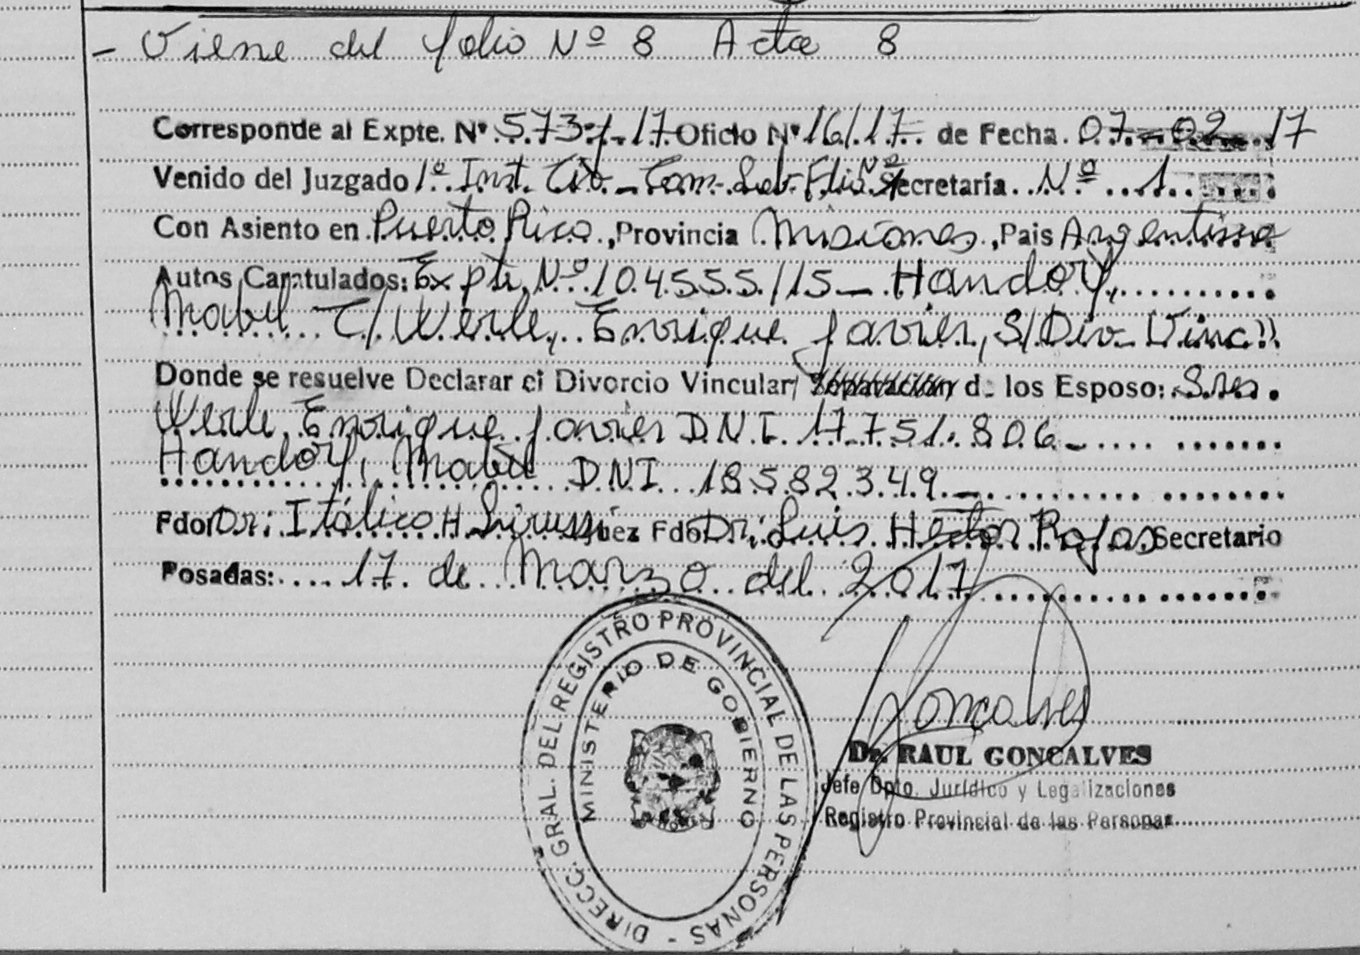 - Viene del folio Nº 8 Acta 8
Corresponde al Expte. Nº 573-1-17 Oficio Nº 16/17 de Fecha 07-02-17
Venido del Juzgado 1º Inst. Civ. Com. Lab. Flia. Nº 1 Secretaría Nº 1
Con Asiento en Puerto Rico, Provincia Misiones, Pais Argentina
Autos Caratulados: Expte. Nº 104555/15 - Handory,
Mabel C/ Werle, Enrique Javier, S/Div- Vinc."
Donde se resuelve Declarar el Divorcio Vincular/ Separación d- los Esposo: Sres.
Werle Enrique Javier D.N.I. 17.751.806 -
Handory, Mabel DNI 18.582.349 -
Fdo Dr: Itálico H. Juez Fdo Dr: Luis Héctor Rojas Secretario
Posadas: 17 de Marzo del 2017
DIRECC. GRAL. DEL REGISTRO PROVINCIAL DE LAS PERSONAS -
MINISTERIO DE GOBIERNO
Goncalves
Dr. RAUL GONCALVES
Jefe Dpto. Jurídico y Legalizaciones
Registro Provincial de las Personas